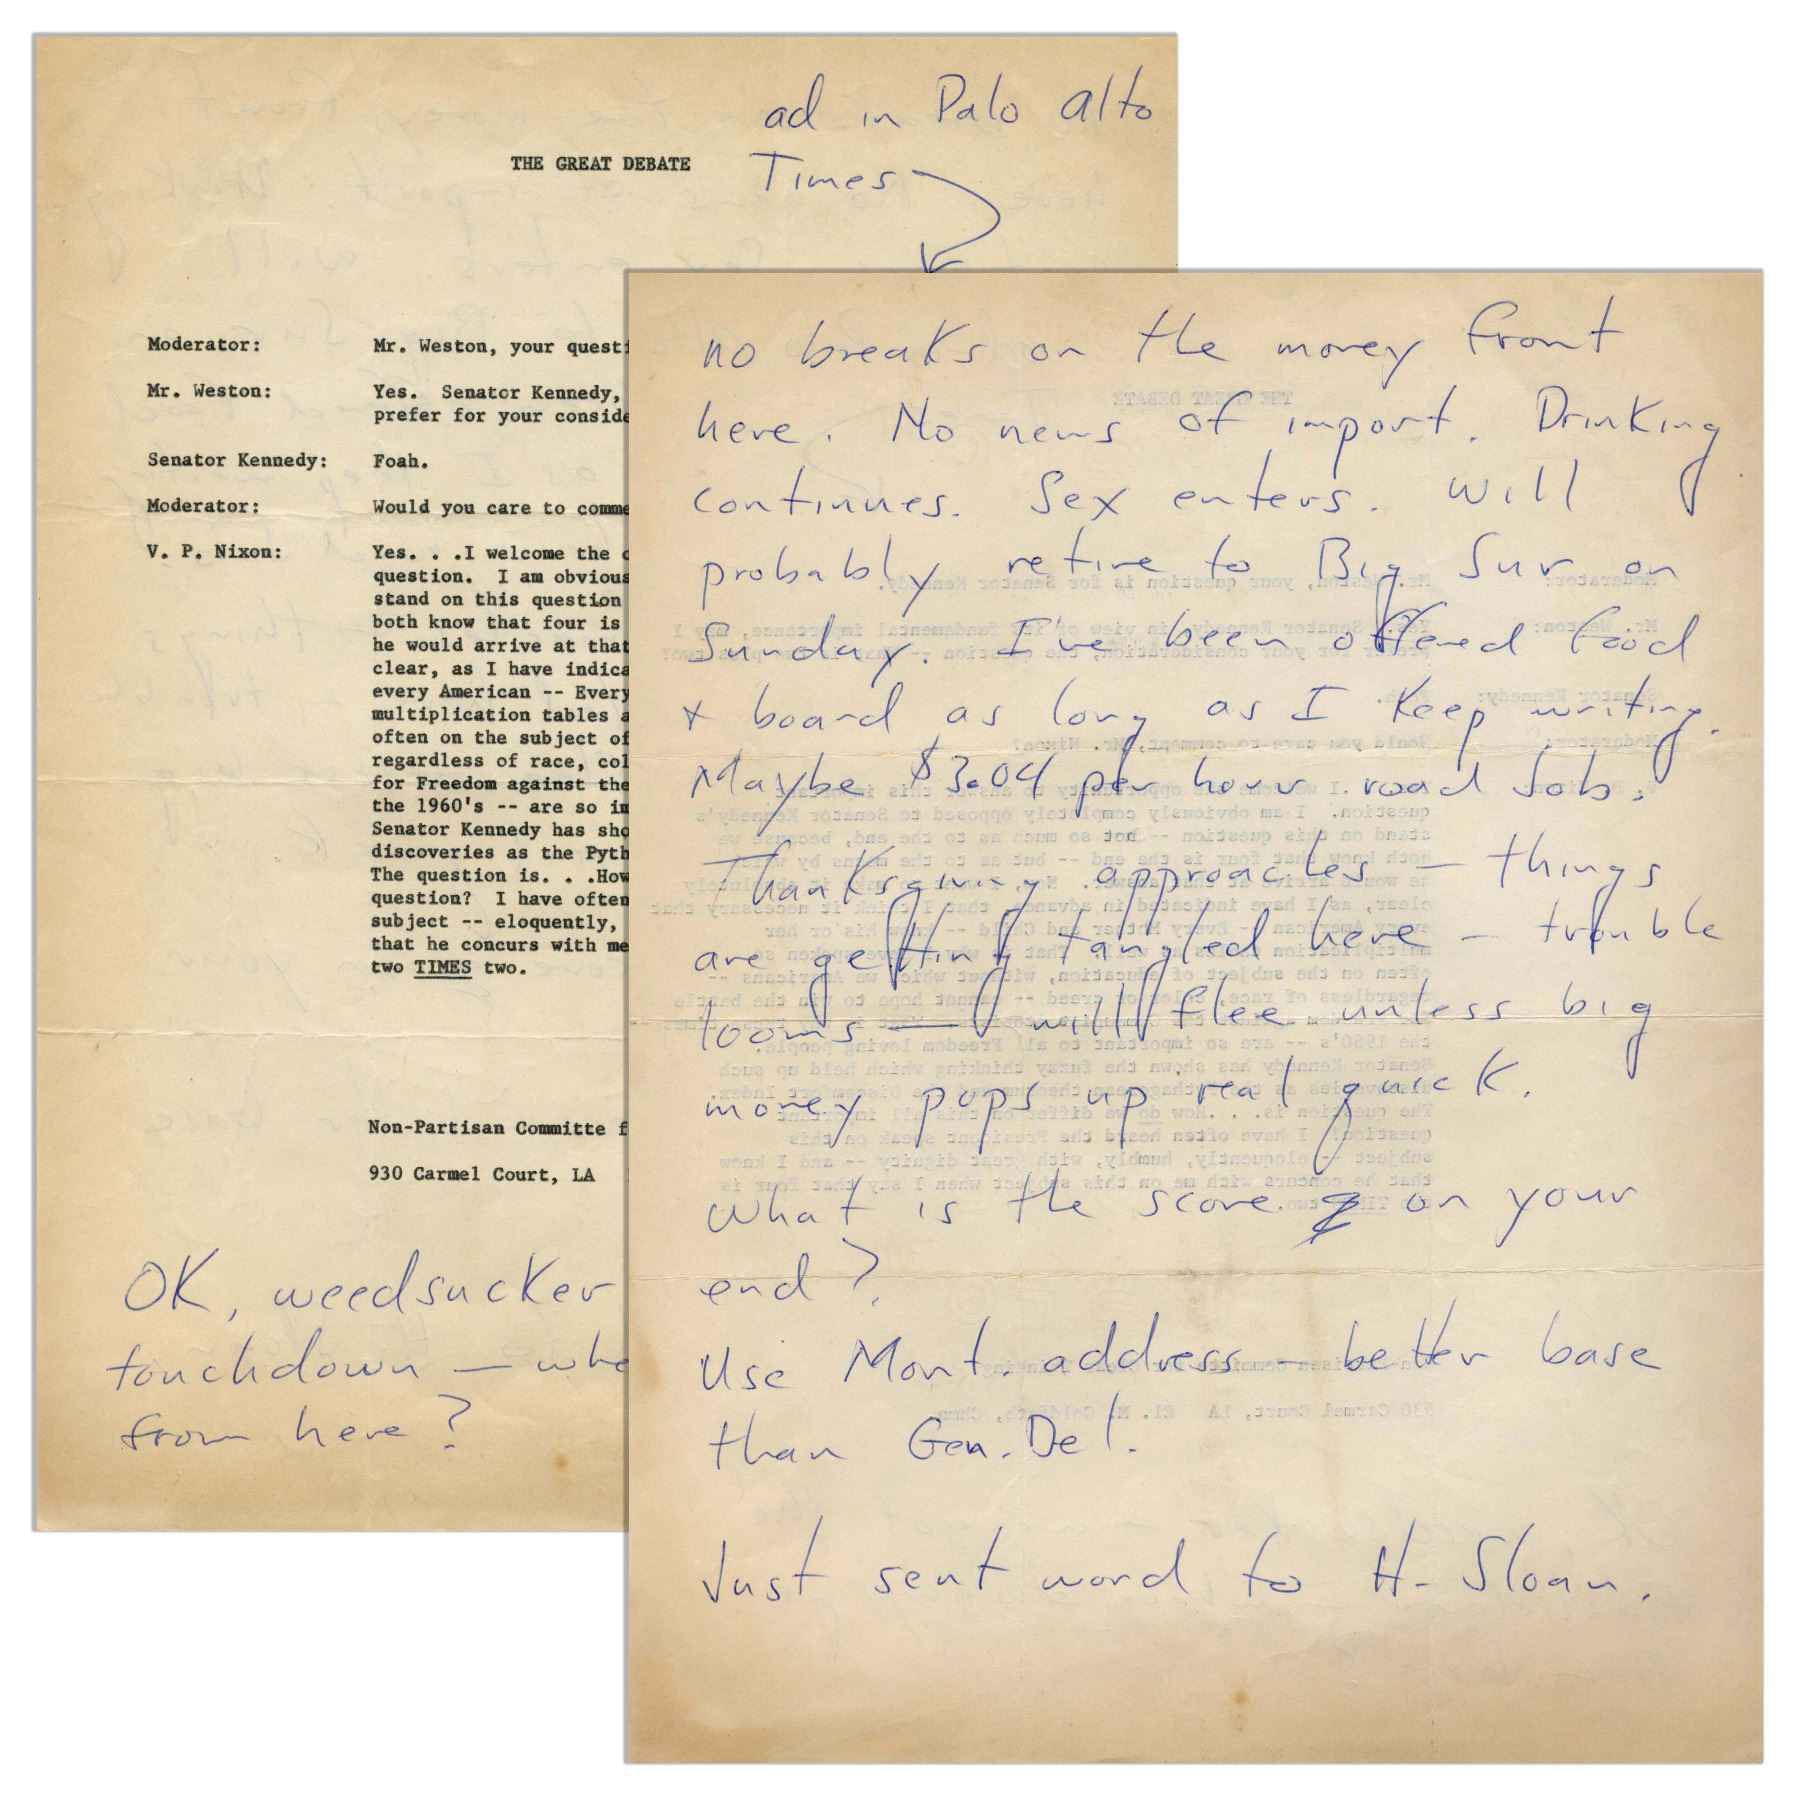 ad in Palo Alto
Times
THE GREAT DEBATE
Moderator: Mr. Weston, your quest
Mr. Weston: Yes. Senator Kennedy,
prefer for your conside
Senator Kennedy: Foah.
Moderator: Would you care to comme
V. P. Nixon: Yes. . .I welcome the
question. I am obvious
stand on this question
both know that four is
he would arrive at that
clear, as I have indica
every American -- Every
multiplication tables a
often on the subject of
regardless of race, col
for Freedom against the
the 1960's -- are so im
Senator Kennedy has sho
discoveries as the Pyth
The question is. . .How
question? I have often
subject -- eloquently,
that he concurs with me
two TIMES two.
Non-Partisan Committe f
930 Carmel Court, LA
OK, weedsucker
touchdown — whe
from here?
no breaks on the money front
here. No news of import. Drinking
continues. Sex enters. Will
probably retire to Big Sur on
Sunday. I've been offered food
+ board as long as I keep writing.
Maybe $3.04 per hour road job.
Thanksgiving approaches — things
are getting tangled here — trouble
looms — will flee unless big
money pops up real quick.
What is the score on your
end?
Use Mont. address — better base
than Gen. Del.
Just sent word to H. Sloan.